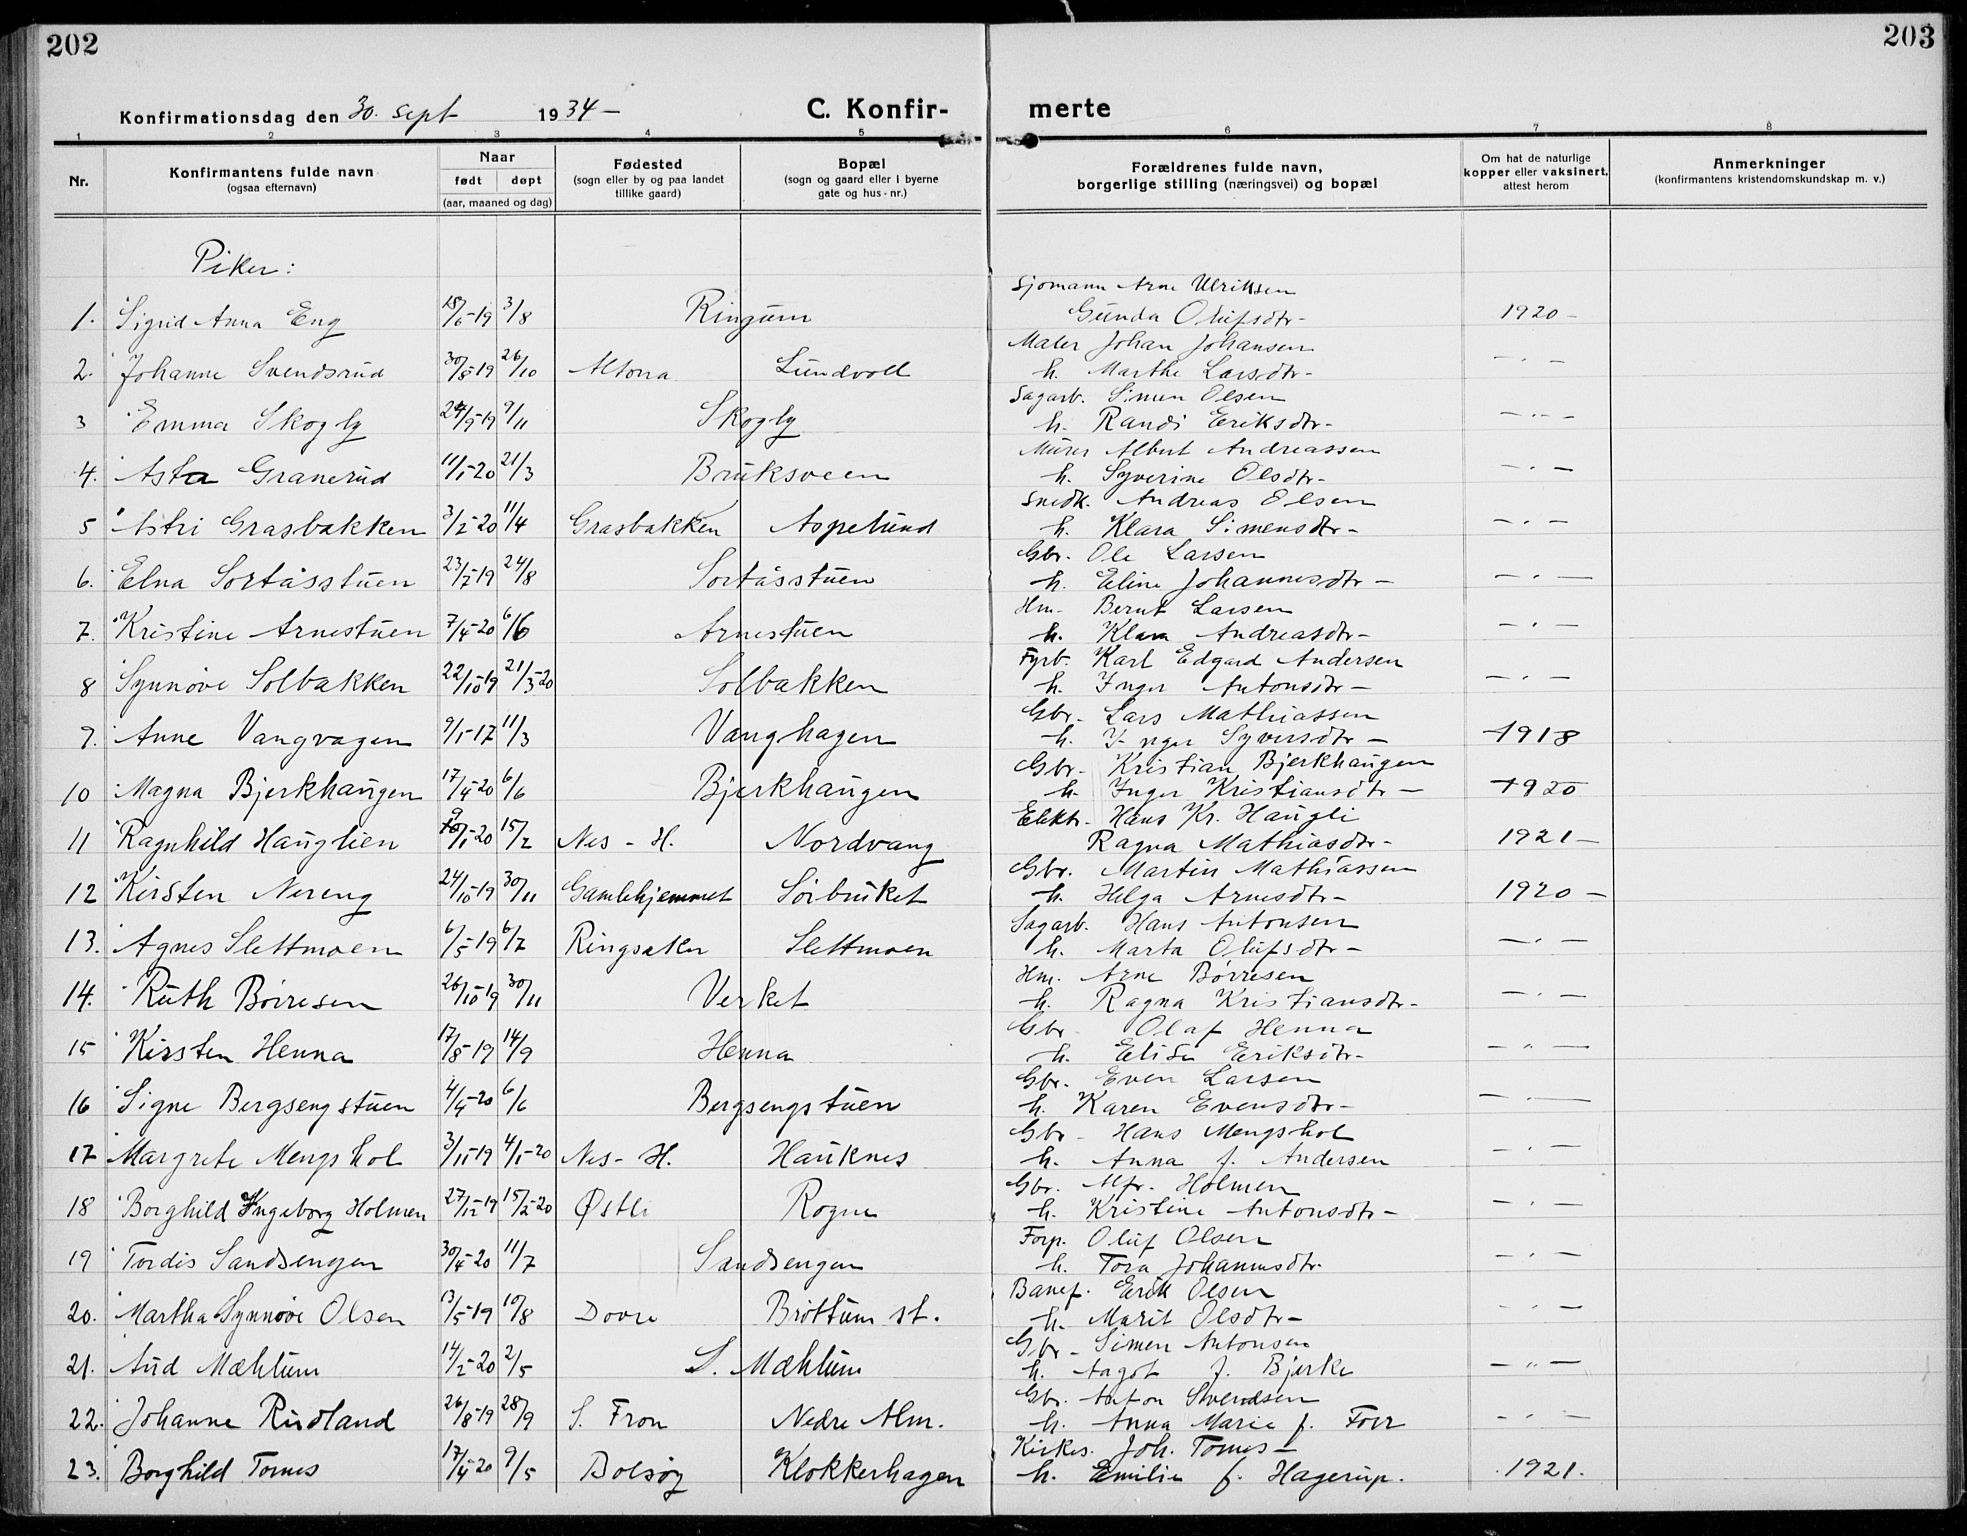 202
203
Konfirmationsdag den 30. sept 1934 –
C. Konfir- merte
1 2 3 4 5 6 7 8
Nr.
Konfirmantens fulde navn
(ogsaa efternavn)
Naar
født døpt
(aar, maaned og dag)
Fødested
(sogn eller by og paa landet
tillike gaard)
Bopæl
(sogn og gaard eller i byerne
gate og hus-nr.)
Forældrenes fulde navn,
borgerlige stilling (næringsvei) og bopæl
Om hat de naturlige
kopper eller vaksinert,
attest herom
Anmerkninger
(konfirmantens kristendomskundskap m. v.)
Piker:
Sjømann Arne Ulriksen
1. Sigrid Anna Eng 18/6-19 3/8 Ringum Gunda Olufsdtr- 1920 –
Maler Johan Johansen
2. Johanne Svendsrud 30/8-19 26/10 Altona Lundvoll h. Marthe Larsdtr- – " –
Sagarb. Simen Olsen
3 Emma Skogly 24/9-19 9/11 Skogly h. Randi Eriksdtr- – " –
Murer Albert Andreassen
4. Asta Granerud 11/1-20 21/3 Bruksveen h. Syverine Olsdtr- – " –
Snedk. Andreas Olsen
5 Astri Grasbakken 3/2-20 11/4 Grasbakken Aspelund h. Klara Simensdtr- – " –
Gbr. Ole Larsen
6. Elna Sortåsstuen 23/7-19 24/8 Sortåsstuen h. Eline Johannesdtr – – " –
Hm. Bernt Larsen
7. Kristine Arnestuen 7/4-20 6/6 Arnestuen h. Klara Andreasdtr- – " –
Fyrb. Karl Edgard Andersen
8 Synnøve Solbakken 22/10-19 21/3-20 Solbakken h. Inger Antonsdtr – – " –
Gbr. Lars Mathiassen
9. Anne Vangvagen 9/1-17 11/3 Vanghagen h. Inger Syversdtr – 1918
Gbr. Kristian Bjerkhaugen
10 Magna Bjerkhaugen 17/4-20 6/6 Bjerkhaugen h. Inger Kristiansdtr – 1920
Elektr. Hans Kr. Haugli
11 Ragnhild Hauglien 9/1-20 15/2 Nes - H. Nordvang Ragna Mathiasdtr- 1921 –
Gbr. Martin Mathiassen
12 Kirsten Nereng 24/10-19 30/11 Gamlehjemmet Sørbruket h. Helga Arnesdtr- 1920 –
Sagarb. Hans Antonsen
13. Agnes Slettmoen 6/5-19 6/7 Ringsaker Slettmoen h. Marta Olufsdtr – – " –
Hm. Arne Børresen
14. Ruth Børresen 26/10-19 30/11 Verket h. Ragna Kristiansdtr- – " –
Gbr Olaf Henna
15 Kirsten Henna 17/8-19 14/9 Henna h. Elise Eriksdtr- – " –
Gbr. Even Larsen
16 Signe Bergsengstuen 4/4-20 6/6 Bergsengstuen h. Karen Evensdtr- – " –
Gbr - Hans Mengshol
17 Margrete Mengshol 3/11-19 4/1-20 Nes - H. Hauknes h. Anna f. Andersen " –
Gbr. Alfr. Holmen
18 Borghild Ingeborg Holmen 27/12-19 15/2-20 Østli Rogne h. Kristine Antonsdtr- – " –
Forp. Oluf Olsen
19 Tordis Sandsengen 30/4-20 11/7 Sandsengen h. Tora Johannesdtr. – " –
Banef. Erik Olsen
20. Martha Synnøve Olsen 13/5-19 10/8 Dovre Brøttum st. h. Marit Olsdtr- – " –
Gbr - Simen Antonsen
21. Aud Mæhlum 14/2-20 2/5 S. Mæhlum h. Aagot f. Bjerke – " –
Gbr. Anton Svendsen
22. Johanne Rudland 26/8-19 28/9 S. Fron Nedre Alm. h. Anna Marie f. Foer – " –
Kirkes. Joh. Tornes –
23. Borghild Tornes 17/4-20 9/5 Bolsøy Klokkerhagen h. Emilie f. Hagerup. 1921.